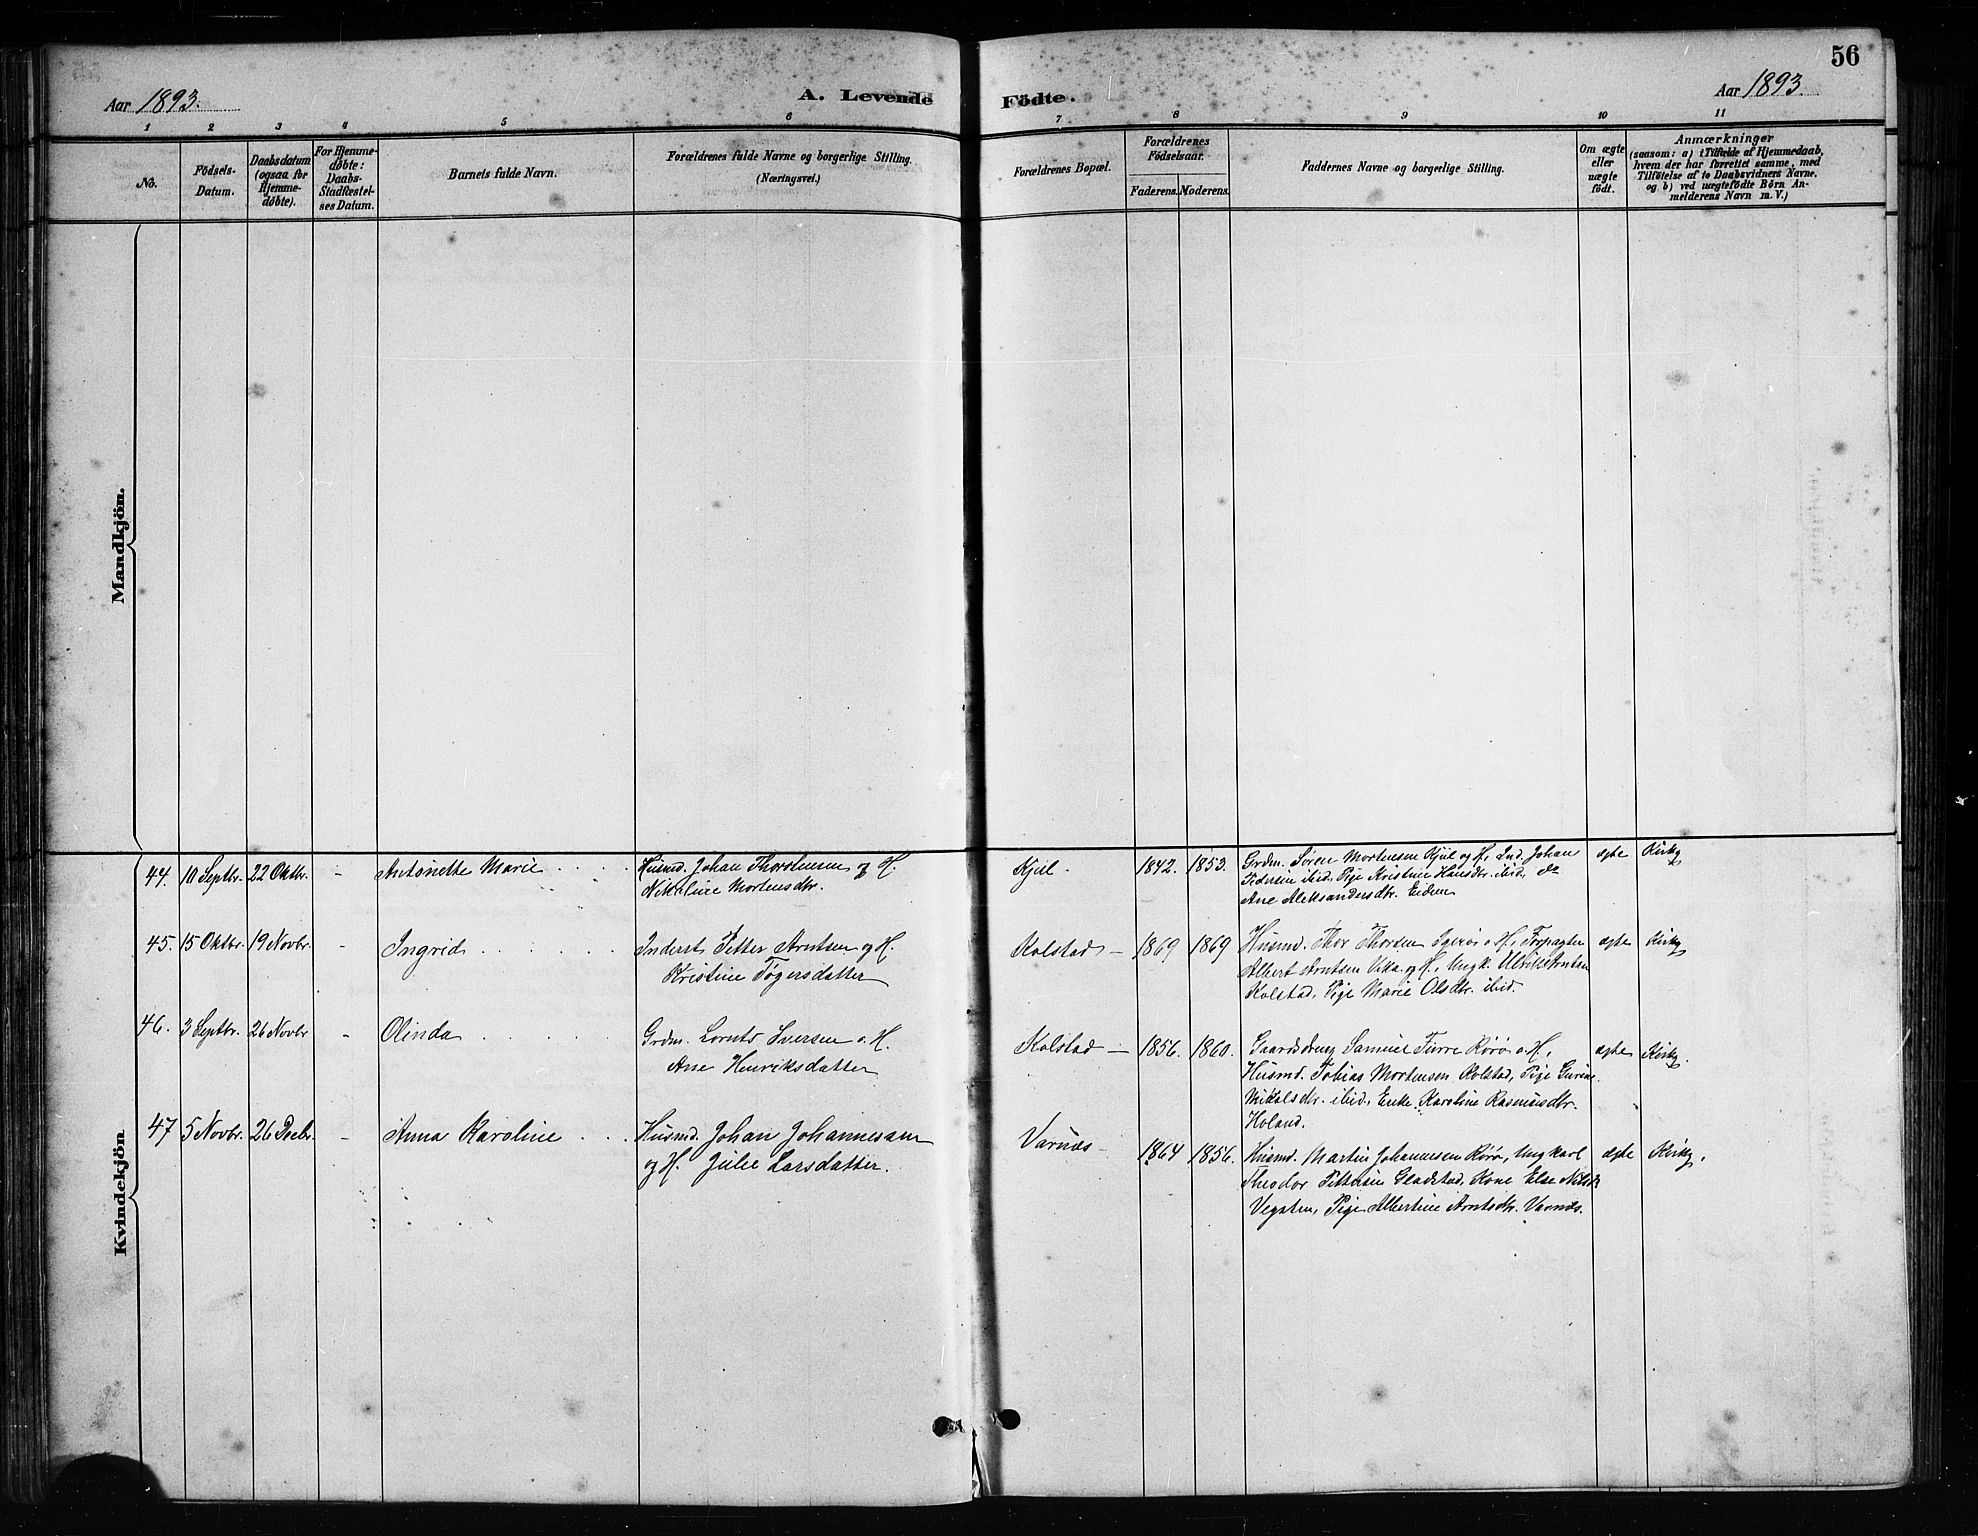 56
Aar 1893.
A. Levende Födte.
Aar 1893.
1 2 3 4 5 6 7 8 9 10 11
No.
Födsels-
Datum.
Daabsdatum
(ogsaa for
Hjemme-
døbte).
For Hjemme-
døbte:
Daabs-
Stadfæstel-
ses Datum.
Barnets fulde Navn.
Forældrenes fulde Navne og borgerlige Stilling.
(Næringsvei.)
Forældrenes Bopæl.
Forældrenes
Födselsaar.
Faderens. Moderens.
Faddernes Navne og borgerlige Stilling.
Om ægte
eller
uægte
født.
Anmærkninger
(saasom: a) i Tilfælde af Hjemmedaab,
hvem der har forrettet samme, med
Tilføielse af to Daabsvidners Navne,
og b) ved uægtefødte Börn An-
melderens Navn m. V.)
Mandkjön.
Kvindekjön
44. 10 Septbr. 22 Oktbr. - Antonette Marie
Husmd. Johan Thorstensen og H.
Nikoline Mortensdtr.
Kjul - 1842. 1853.
Grdm. Sören Mortensen Kjul og H., Ind. Johan
Pedersen ibid, Pige Kristine Hansdtr. ibid, do
Ane Aleksandersdtr. Eidem
ægte Kirke
45. 15 Oktbr. 19 Novbr. - Ingrid
Inderst Petter Arntsen og H.
Kristine Tøgersdatter
Kolstad - 1869 1869
Husmd. Thor Thorsen Igerö o. H., Forpagter
Albert Arntsen Vika og H., Ungk. Ulrik Arntsen
Kolstad, Pige Marie Olsdtr. ibid.
ægte Kirke
46. 3 Septbr. 26 Novbr - Olinda
Grdm. Lornts Iversen o. H.
Ane Henriksdatter
Kolstad - 1856. 1860.
Gaardsdreng Samuel Rörö o. H.,
Husmd. Tobias Mortensen Kolstad, Pige Gurine
Nikolsdtr. ibid., Enke Karoline Rasmusdtr.
Holand.
ægte Kirke.
47 5 Novbr. 26 Decbr. - Anna Karoline
Husmd. Johan Johannessen
og H. Julie Larsdatter.
Varnæs - 1864 1856.
Husmd. Martin Johannesen Rörö, Ungkarl
Theodor Pettersen Gladstad, Kone Else Nilsdtr
Vegsten, Pige Albertine Arntsdtr. Varnæs.
ægte Kirke.